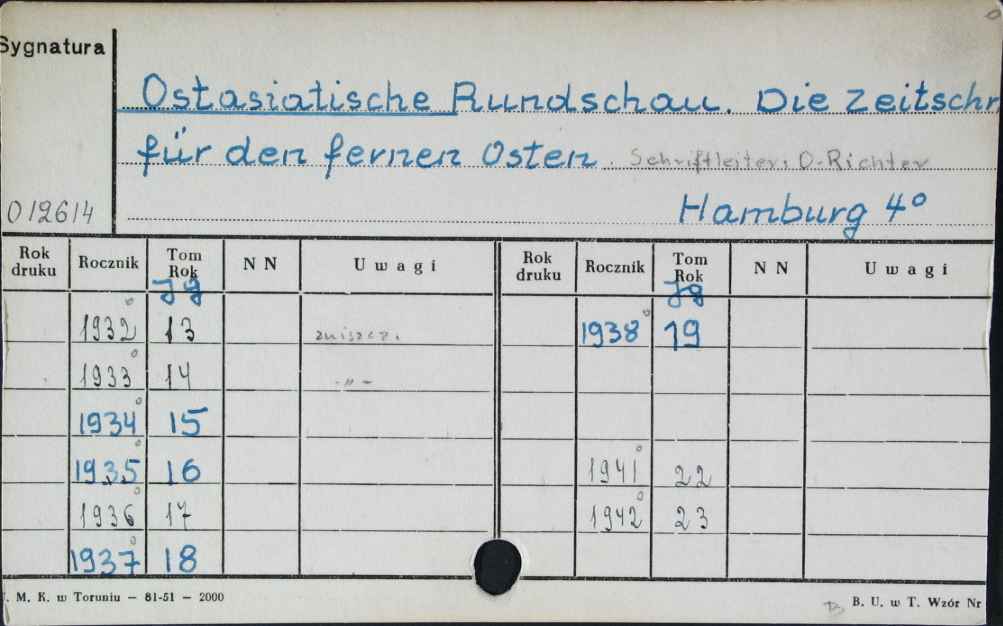 Sygnatura
Ostasiatische Rundschau. Die Zeitschr
für den fernen Osten. Schriftleiter: O-Richter
012614 Hamburg 4°
Rok druku Rocznik Tom Rok N N Uwagi Rok druku Rocznik Tom Rok N N Uwagi
Jg Jg
1932° 13 zniszcz. 1938° 19
1933° 14 -„-
1934° 15
1935° 16 1941° 22
1936° 17 1942° 23
1937° 18
. M. K. w Toruniu — 81-51 — 2000 B. U. w T. Wzór Nr